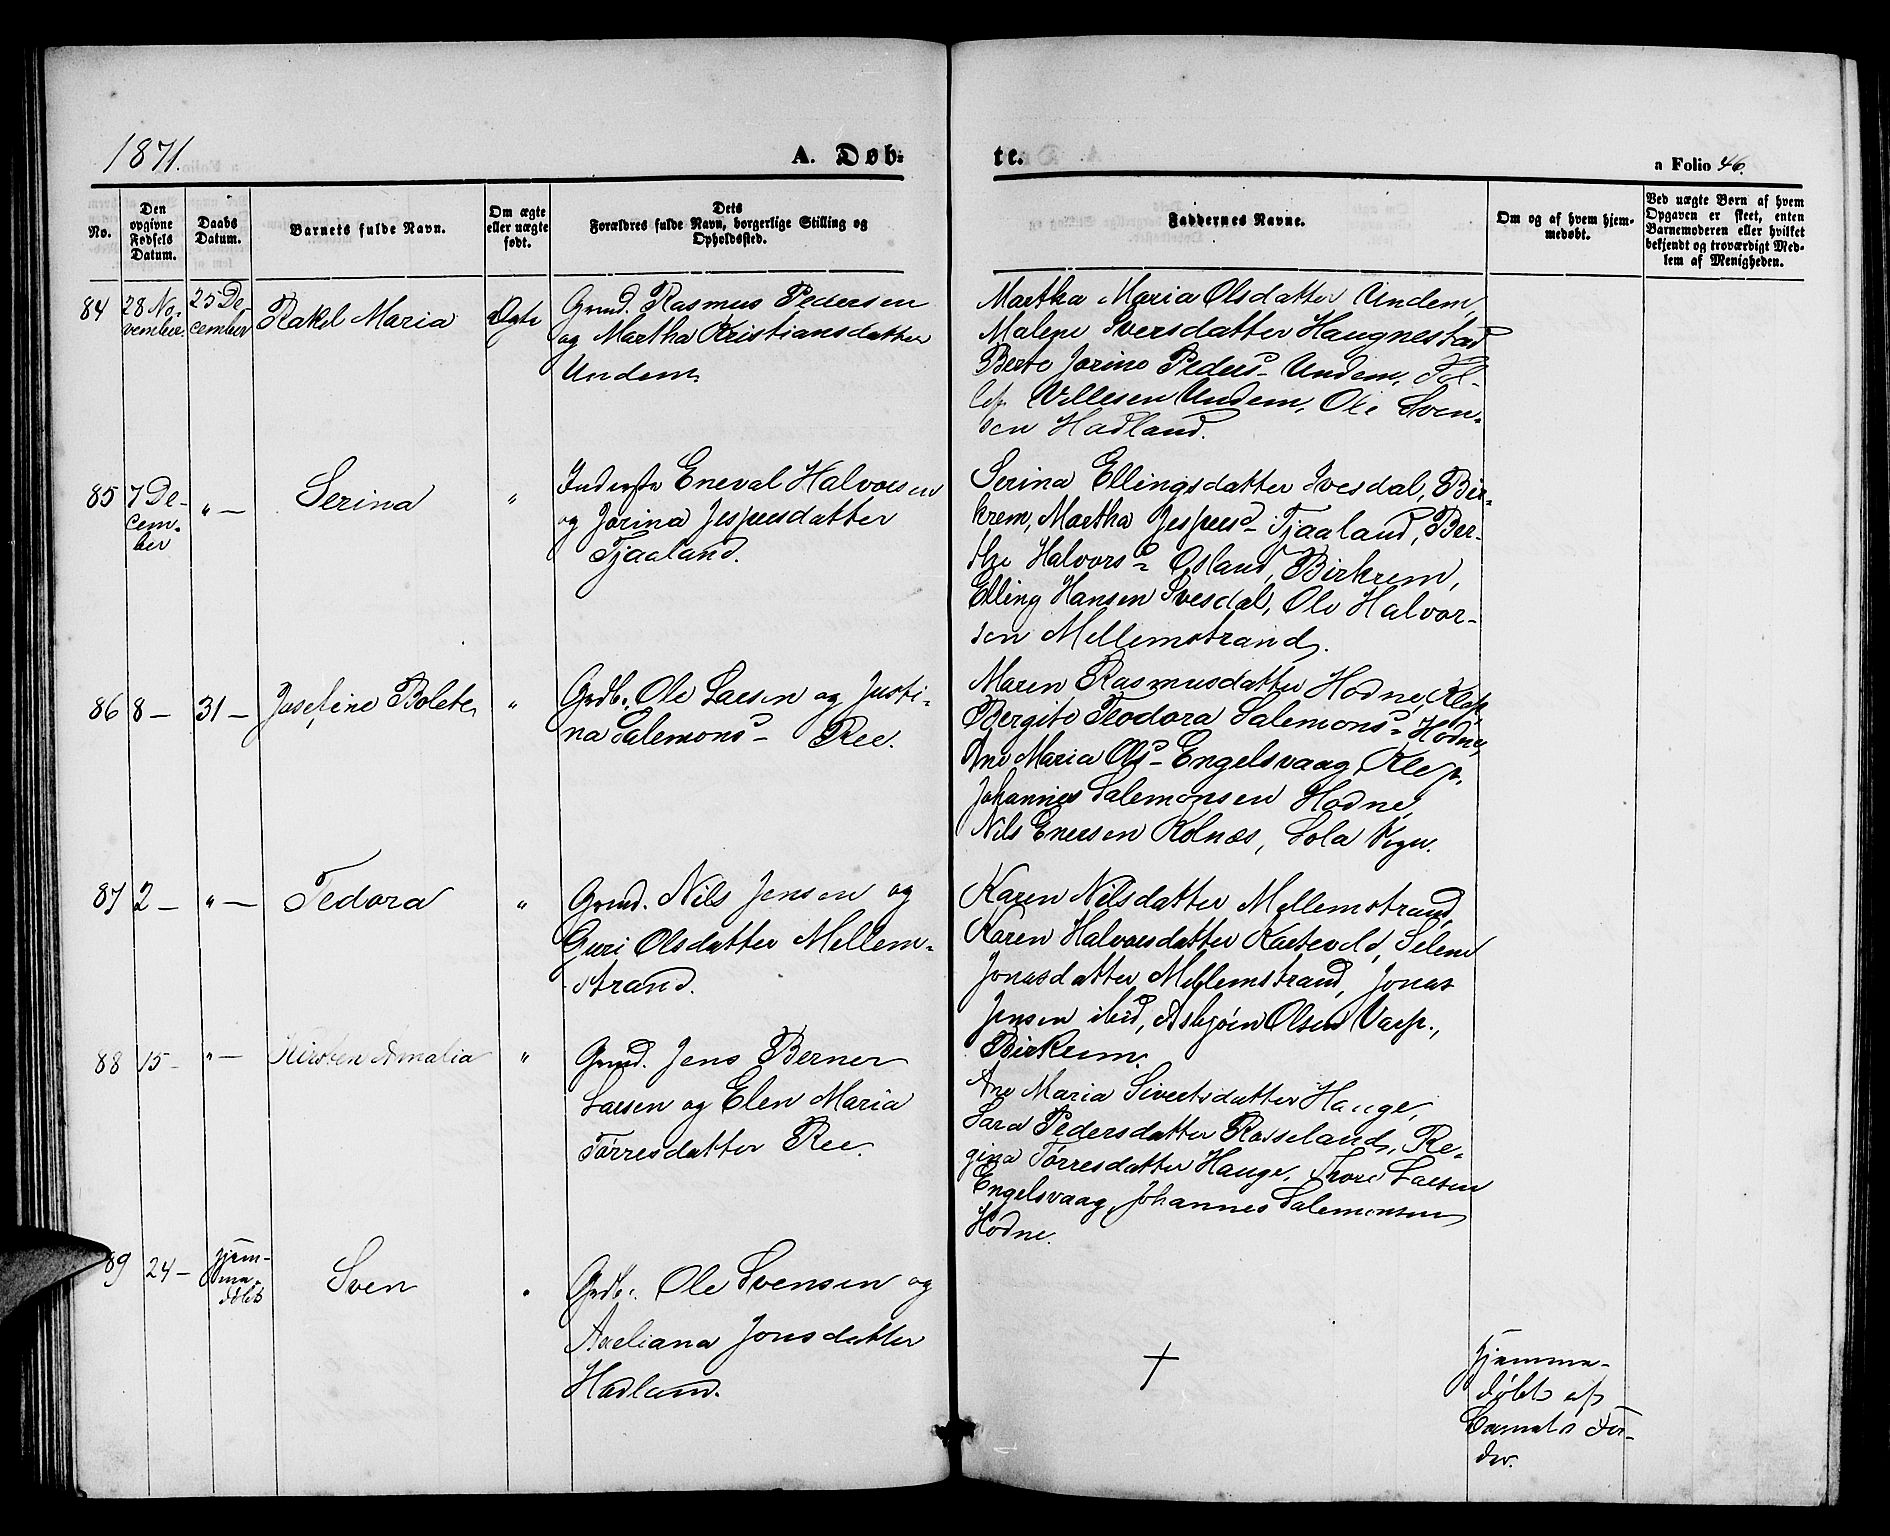 1871.
A. Døb-
te.
a Folio 46.
No.
Den opgivne Fødsels Datum.
Daabs Datum.
Barnets fulde Navn.
Om ægte eller uægte født.
Dets Forældres fulde Navn, borgerlige Stilling og Opholdssted.
Faddernes Navne.
Om og af hvem hjem-
medøbt.
Ved uægte Børn af hvem
Opgaven er skeet, enten
Barnemoderen eller hvilket
bekjendt og troværdigt Med-
lem af Menigheden.
84
28 No-
vember.
25 De-
cember
Rakel Maria
Ægte
Grmd. Rasmus Pedersen
og Martha Kristiansdatter
Undem.
Martha Maria Olsdatter Undem,
Malene Iversdatter Haugnestad
Berte Jorine Pedersd- Undem, Tol-
lef Villesen Undem, Ole Sven-
sen Hadland.
85
7 De-
cem-
ber
" —
Serina
"
Inderste Eneval Halvorsen
og Jorina Jespersdatter
Tjaaland.
Serina Ellingsdatter Ivesdal, Bir-
krem, Martha Jespersd- Tjaaland, Ber-
the Halvorsd- Osland, Birkrem,
Elling Hansen Ivesdal, Ole Halvor-
sen Mellemstrand.
86
8 —
31 —
Josefine Bolete
"
Grdb. Ole Larsen og Justi-
na Salemonsd- Ree.
Maren Rasmusdatter Hodne, Klep,
Bergite Teodora Salemonsd- Hodne,
Ane Maria Olsd- Engelsvaag, Klep,
Johannes Salemonsen Hodne,
Nils Enersen Kolnæs, Sola Sogn.
87
2 —
" —
Tedora
"
Grmd. Nils Jensen og
Guri Olsdatter Mellem-
strand.
Karen Nilsdatter Mellemstrand,
Karen Halvorsdatter Kartevold, Selene
Jonasdatter Mellemstrand, Jonas
Jensen ibid, Asbjørn Olsen Varp,
Birkrem.
88
15 -
" —
Kirsten Amalia
"
Grmd. Jens Berner
Larsen og Elen Maria
Tørresdatter Ree.
Ane Maria Sivertsdatter Hauge,
Sara Pedersdatter Rosseland, Re-
gina Tørresdatter Hauge, Thore Larsen
Engelsvaag, Johannes Salemonsen
Hodne.
89
24 —
Hjem-
me-
døbt
Sven
"
Grdb. Ole Svensen og
Axeliana Jonsdatter
Hadland.
†
Hjemme-
døbt af
Barnets Fa-
der.